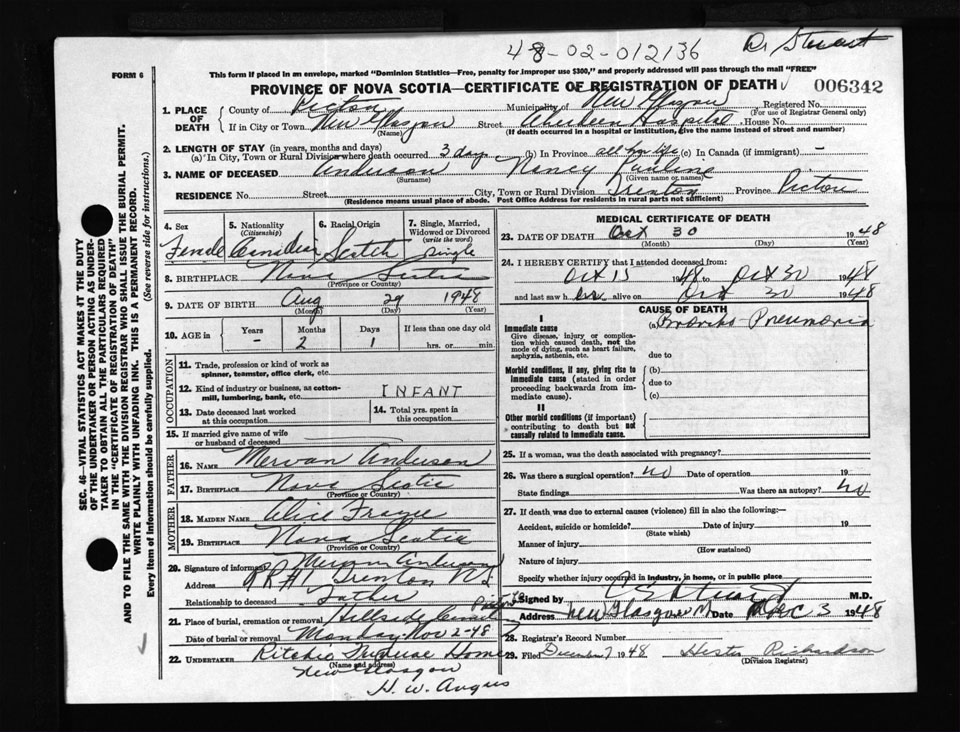 48-02-012136
Dr Stewart
FORM 6
This form if placed in an envelope, marked "Dominion Statistics—Free, penalty for improper use $300," and properly addressed will pass through the mail "FREE"
PROVINCE OF NOVA SCOTIA—CERTIFICATE OF REGISTRATION OF DEATH
006342
1. PLACE OF DEATH
County of Pictou Municipality of New Glasgow Registered No.
(For use of Registrar General only)
If in City or Town New Glasgow Street Aberdeen Hospital House No.
(Name) (If death occurred in a hospital or institution, give the name instead of street and number)
2. LENGTH OF STAY (in years, months and days)
(a) In City, Town or Rural Division where death occurred 3 day (b) In Province all her life (c) In Canada (if immigrant) –
3. NAME OF DECEASED Anderson Nancy Pauline
(Surname) (Given name or names)
RESIDENCE No. Street City, Town or Rural Division Trenton Province Pictou
(Residence means usual place of abode. Post Office Address for residents in rural parts not sufficient)
4. Sex
Female
5. Nationality
(Citizenship)
Canadian
6. Racial Origin
Scotch
7. Single, Married,
Widowed or Divorced
(write the word)
Single
8. BIRTHPLACE Nova Scotia
(Province or Country)
9. DATE OF BIRTH Aug 29 1948
(Month) (Day) (Year)
10. AGE in
Years Months Days If less than one day old
– 2 1 hrs. or min.
OCCUPATION
11. Trade, profession or kind of work as
spinner, teamster, office clerk, etc.
12. Kind of industry or business, as cotton-
mill, lumbering, bank, etc. INFANT
13. Date deceased last worked
at this occupation
14. Total yrs. spent in
this occupation
15. If married give name of wife
or husband of deceased
FATHER
16. NAME Mervan Anderson
17. BIRTHPLACE Nova Scotia
(Province or Country)
MOTHER
18. MAIDEN NAME Alice
19. BIRTHPLACE Nova Scotia
(Province or Country)
20. Signature of informant Mervan Anderson
Address RR #1 Trenton NS
Relationship to deceased Father
21. Place of burial, cremation or removal Hillside
Date of burial or removal Monday Nov 2-48
22. UNDERTAKER Ritchie Funeral Home
(Name and address)
New Glasgow
H. W. Angus
MEDICAL CERTIFICATE OF DEATH
23. DATE OF DEATH Oct 30 1948
(Month) (Day) (Year)
24. I HEREBY CERTIFY that I attended deceased from:
Oct 15 1948 to Oct 30 1948
and last saw her alive on Oct 30 1948
CAUSE OF DEATH
I
Immediate cause
Give disease, injury or complica-
tion which caused death, not the
mode of dying, such as heart failure,
asphyxia, asthenia, etc.
(a) Broncho-Pneumonia
due to
Morbid conditions, if any, giving rise to
immediate cause (stated in order
proceeding backwards from im-
mediate cause).
(b)
due to
(c)
II
Other morbid conditions (if important)
contributing to death but not
causally related to immediate cause.
25. If a woman, was the death associated with pregnancy?
26. Was there a surgical operation? No Date of operation 19
State findings Was there an autopsy? No
27. If death was due to external causes (violence) fill in also the following:—
Accident, suicide or homicide? Date of injury 19
(State which)
Manner of injury
(How sustained)
Nature of injury
Specify whether injury occurred in industry, in home, or in public place
Signed by M.D.
Address New Glasgow Date Dec 3 1948
28. Registrar's Record Number
29. Filed December 7 1948 Hester Richardson
(Division Registrar)
SEC. 46—VITAL STATISTICS ACT MAKES IT THE DUTY
OF THE UNDERTAKER OR PERSON ACTING AS UNDER-
TAKER TO OBTAIN ALL THE PARTICULARS REQUIRED
IN THE "CERTIFICATE OF REGISTRATION OF DEATH"
AND TO FILE THE SAME WITH THE DIVISION REGISTRAR WHO SHALL ISSUE THE BURIAL PERMIT.
WRITE PLAINLY WITH UNFADING INK. THIS IS A PERMANENT RECORD.
Every item of information should be carefully supplied. (See reverse side for instructions.)